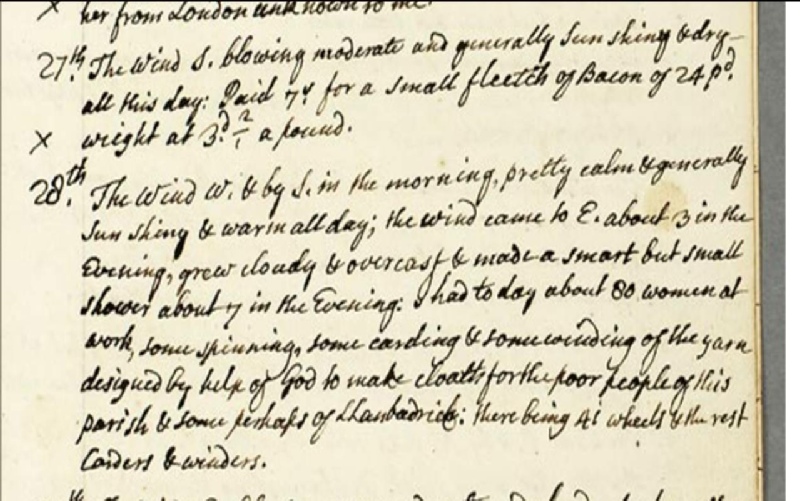 × her from London unknown to me.
27th. The Wind S. blowing moderate and generally Sun shing & dry
all this day: Paid 7s for a small fleetch of Bacon of 24 pd.
× wieght at 3d. 2/1 a pound.
28th. The Wind W. & by S. in the morning, pretty calm & generally
Sun shing & warm all day; the wind came to E. about 3 in the
Evening, grew cloudy & overcast & made a smart but small
shower about 7 in the Evening: I had to day about 80 women at
work, some spinning, some carding & some winding of the yarn
designed by help of God to make cloaths for the poor people of this
parish & some perhaps of Llanbadrick: there being 41 wheels & the rest
Carders & winders.